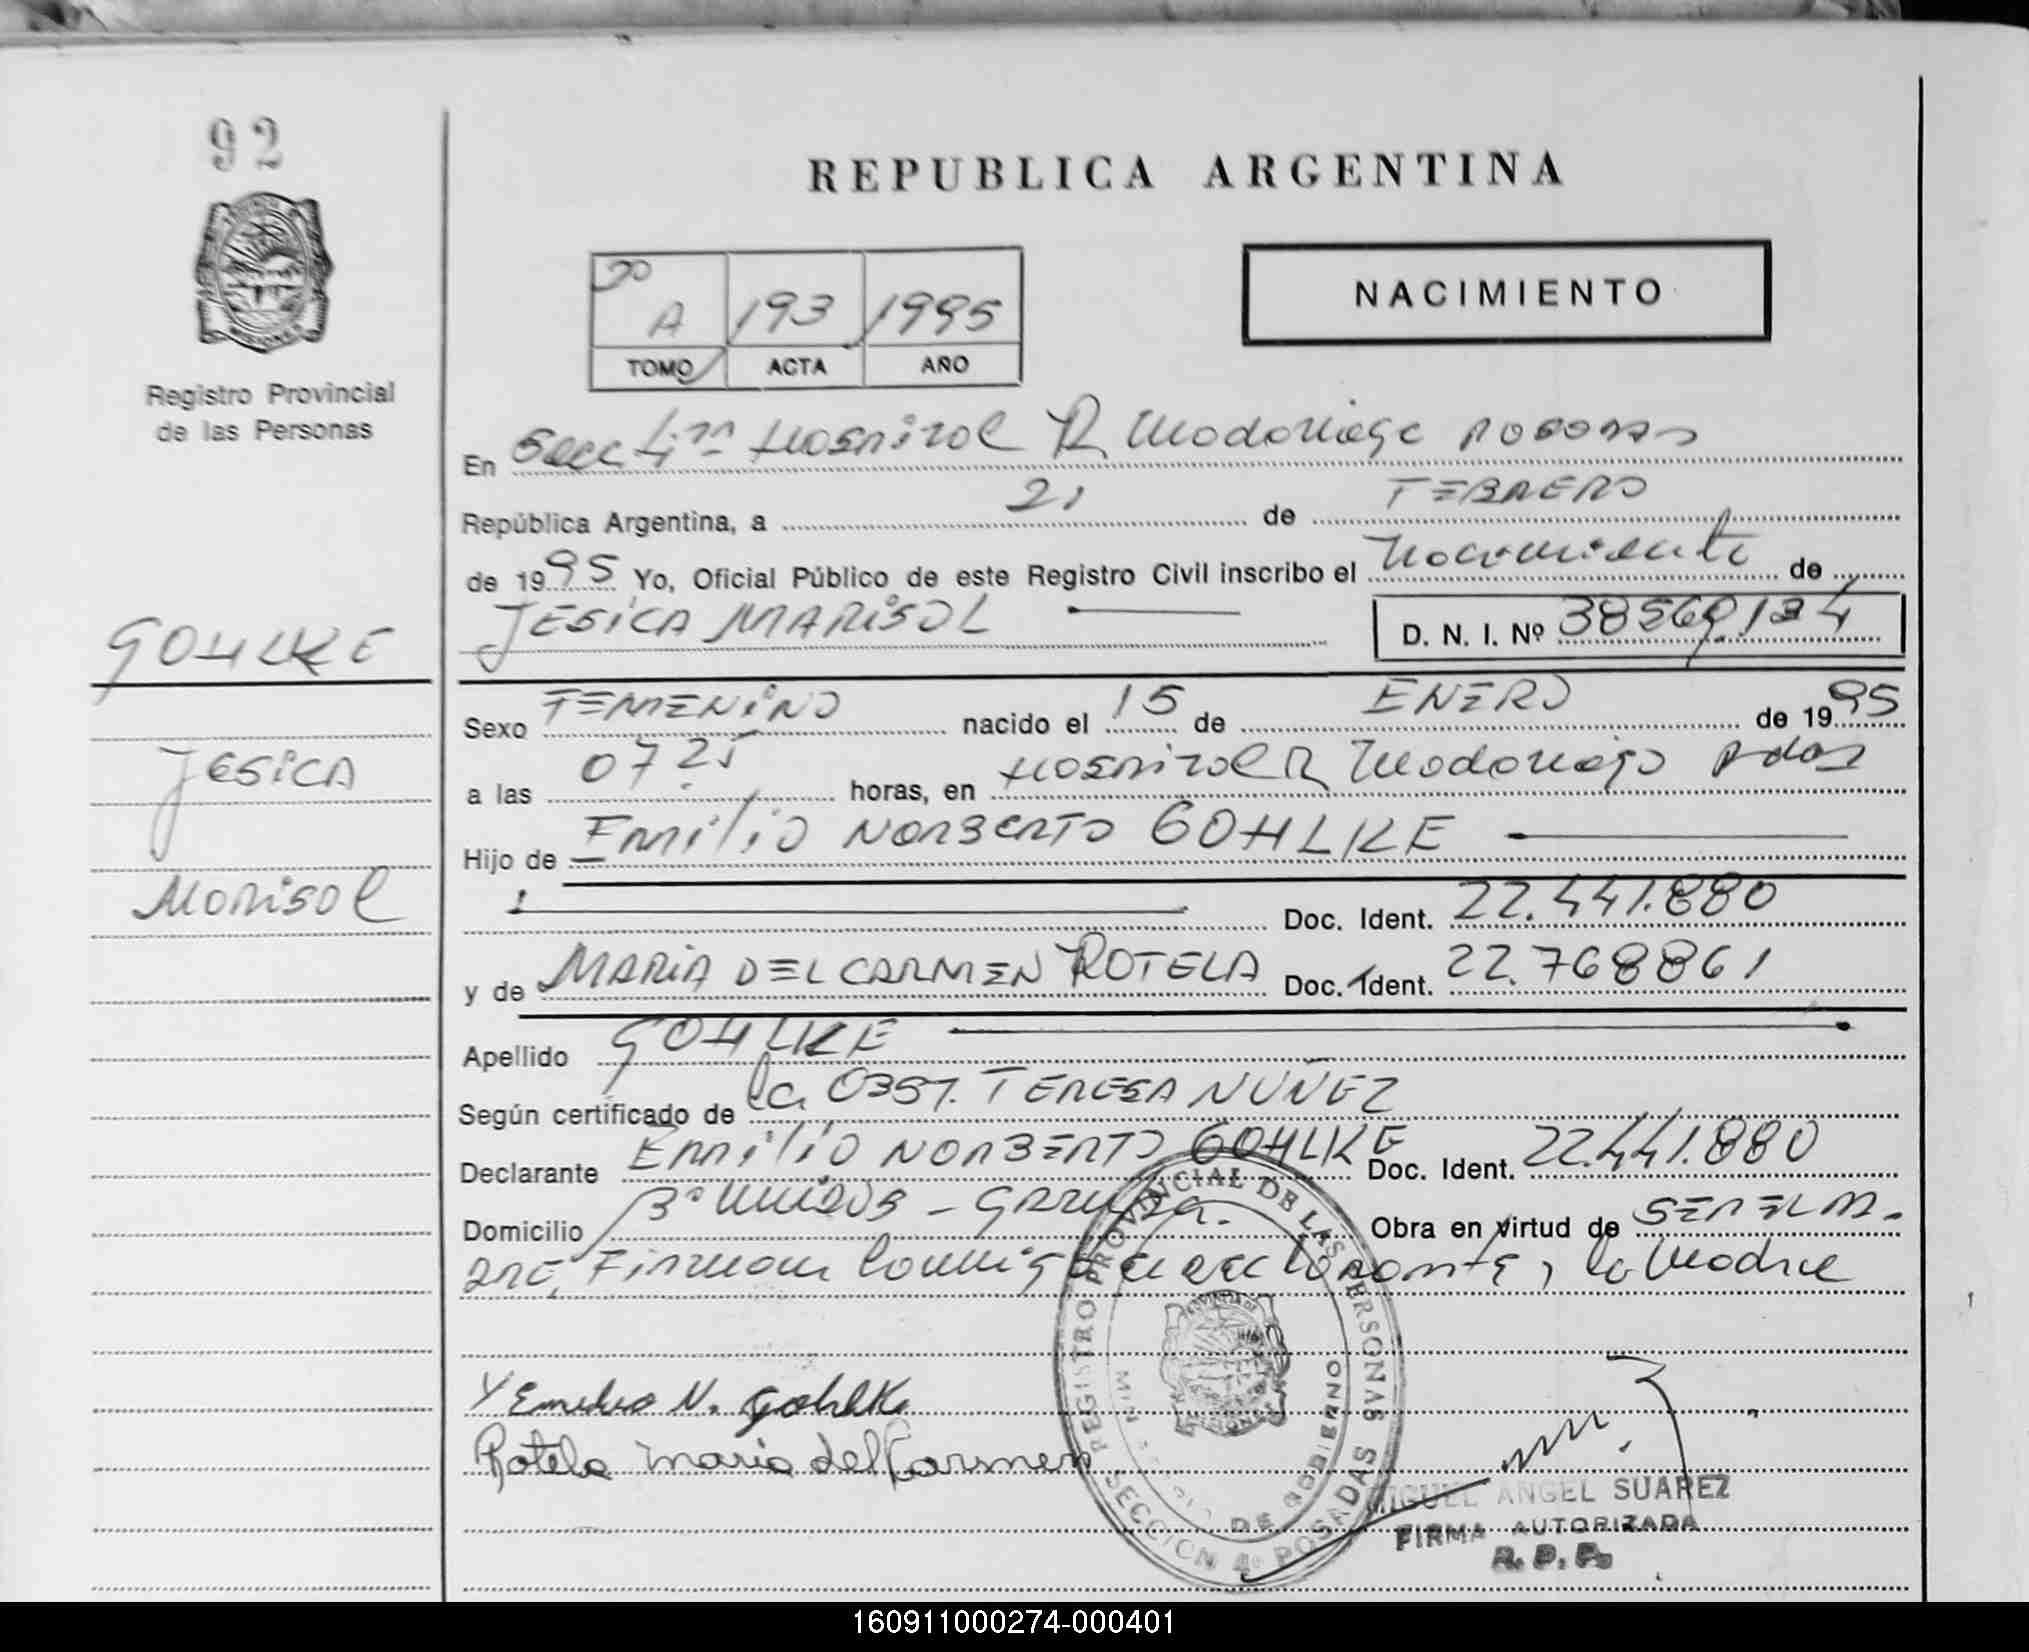 92
REPUBLICA ARGENTINA
NACIMIENTO
A 193 1995
TOMO ACTA AÑO
Registro Provincial
de las Personas
En Secc 4ta Hospital R Madariaga Posadas
República Argentina, a 21 de FEBRERO
de 1995 Yo, Oficial Público de este Registro Civil inscribo el nacimiento de
JESICA MARISOL D. N. I. Nº 38569124
GOHLKE
Sexo FEMENINO nacido el 15 de ENERO de 1995
Jesica
a las 0725 horas, en Hospital R Madariaga Pdas
Hijo de Emilio NORBERTO GOHLKE
Marisol
Doc. Ident. 22.441.880
y de MARIA DEL CARMEN ROTELA Doc. Ident. 22.768861
Apellido GOHLKE
Según certificado de la OBST. TERESA NUÑEZ
Declarante Emilio NORBERTO GOHLKE Doc. Ident. 22.441.880
Domicilio Bº - GARUPA. Obra en virtud de SER EL PA.
DRE, Firman conmigo el declarante, la madre
Y Emilio N. Gohlke
Rotela Maria del Carmen
REGISTRO PROVINCIAL DE LAS PERSONAS
SECCION 4ª POSADAS
MINISTERIO DE GOBIERNO
MIGUEL ANGEL SUAREZ
FIRMA AUTORIZADA
R. P. P.
160911000274-000401